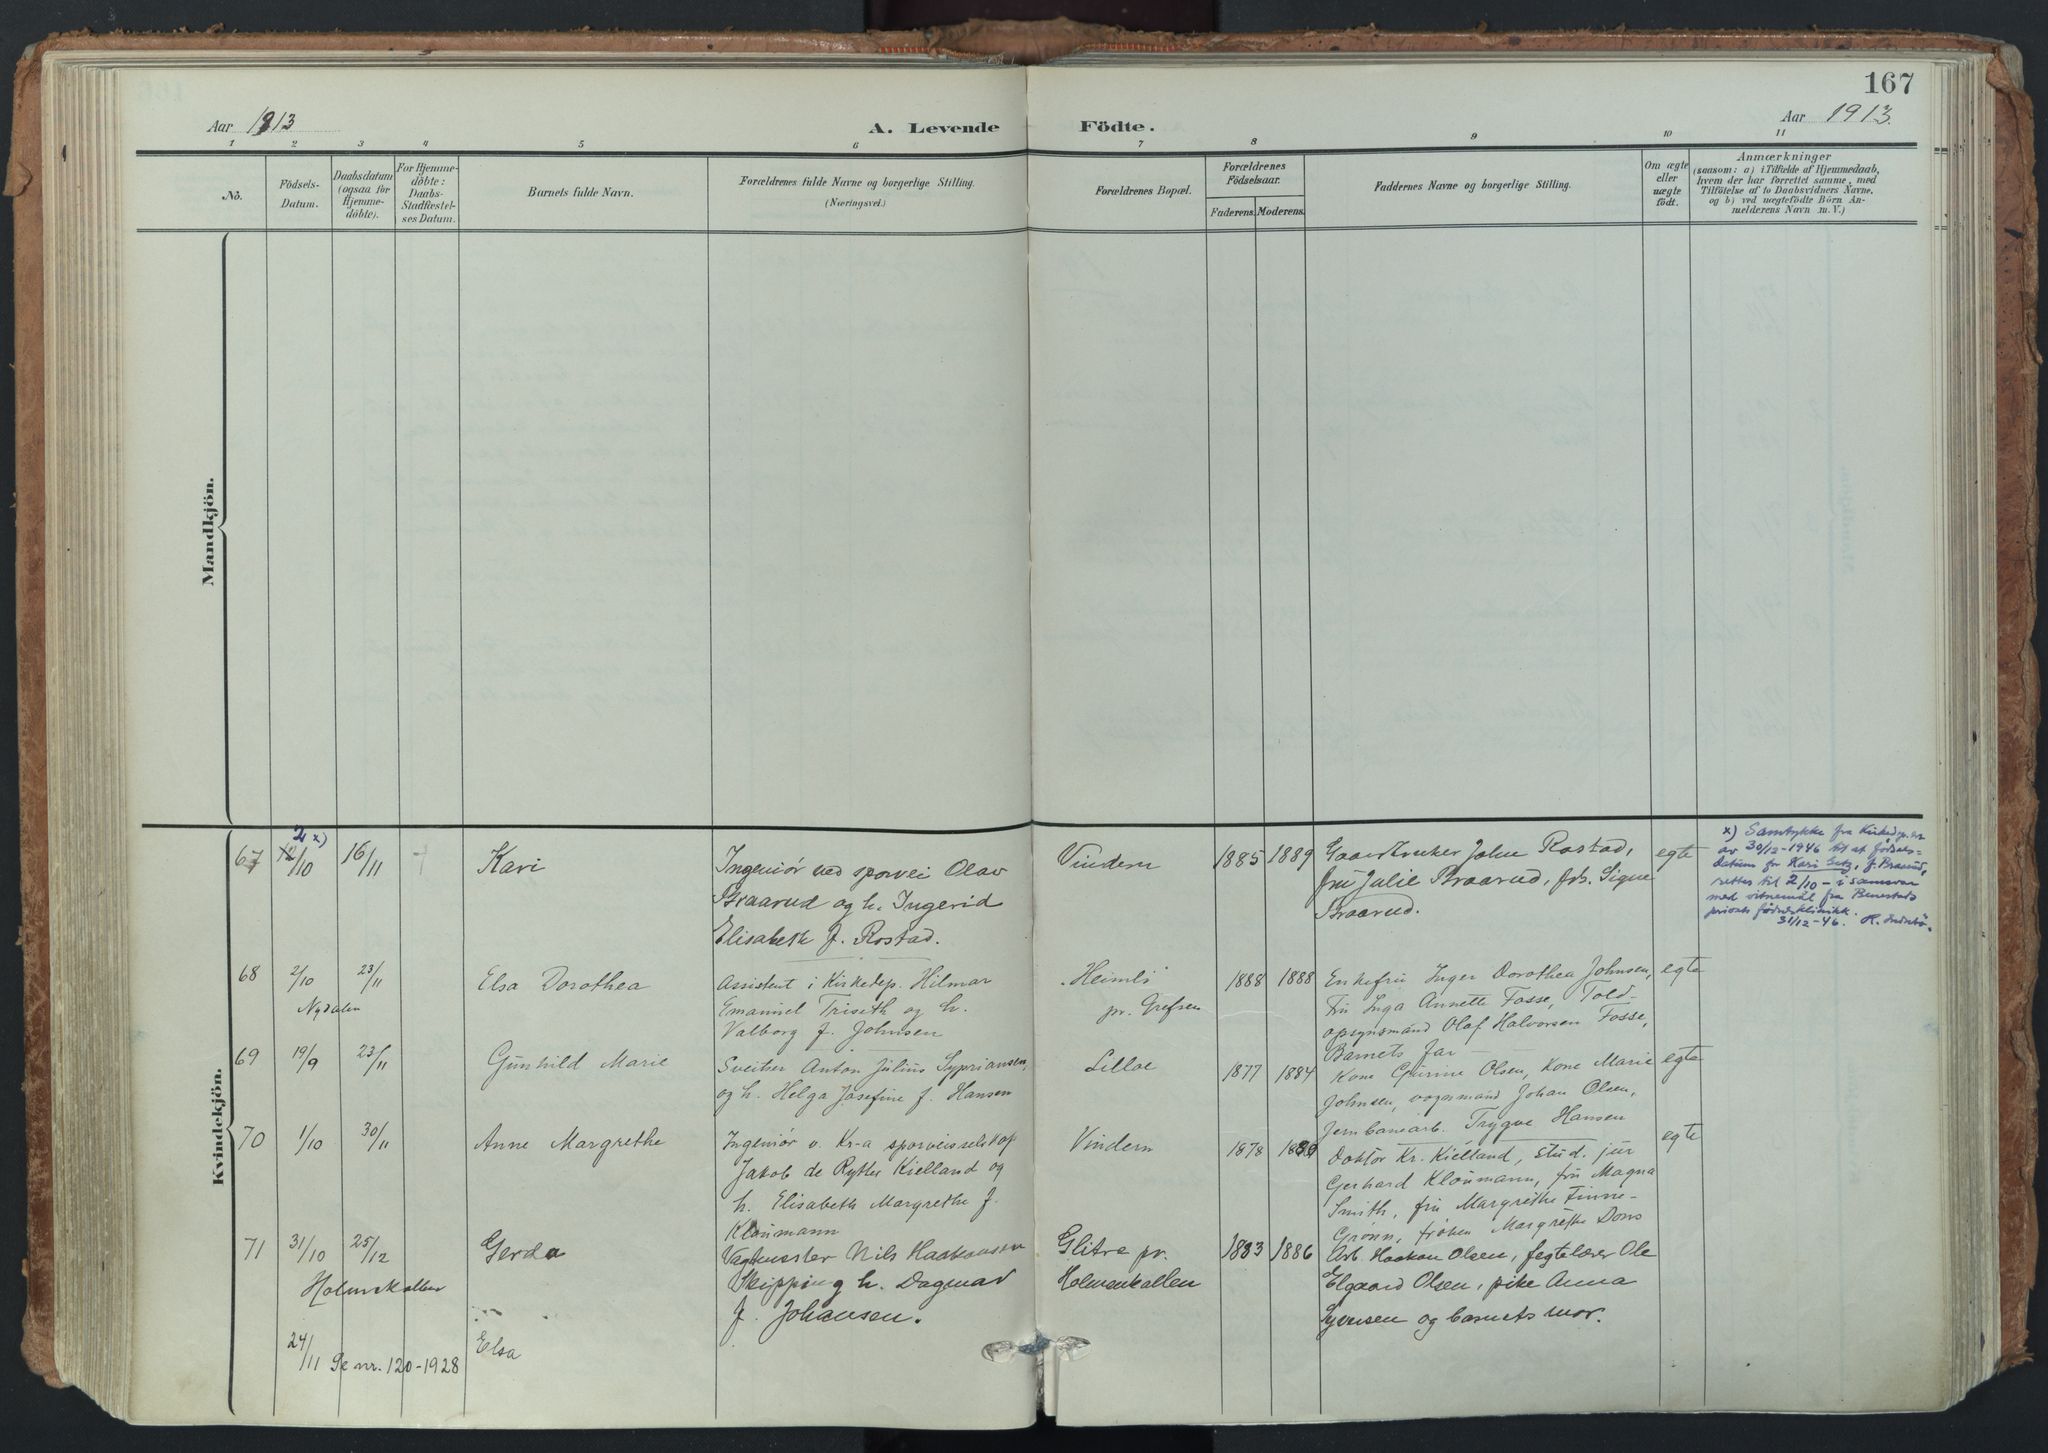 167
Aar 1913
A. Levende Födte.
Aar 1913.
1 2 3 4 5 6 7 8 9 10 11
No.
Födsels-
Datum.
Daabsdatum
(ogsaa for
Hjemme-
döbte).
For Hjemme-
döbte:
Daabs-
Stadfæstel-
ses Datum.
Barnets fulde Navn.
Forældrenes fulde Navne og borgerlige Stilling.
(Næringsvei.)
Forældrenes Bopæl.
Forældrenes
Födselsaar.
Faderens. Moderens.
Faddernes Navne og borgerlige Stilling.
Om ægte
eller
uægte
födt.
Anmærkninger
(saasom: a) i Tilfælde af Hjemmedaab,
hvem der har forrettet samme, med
Tilföielse af to Daabsvidners Navne,
og b) ved uægtefödte Börn An-
melderens Navn m. V.)
Mandkjön.
Kvindekjön.
67
2 x)
12/10
16/11
Kari
Ingeniör ved sporvei Olav
Braarud og h. Ingerid
Elisabeth f. Rostad.
Vindern
1885 1889
Gaardbruker John Rostad,
fru Julie Braarud, frk. Signe
Braarud.
egte
x) Samtykke fra Kirkedep.
av 30/12-1946 til at födsels-
datum for Kari f. Braarud,
rettes til 2/10 - i samsvar
med vitnemål fra
private fødeklinikk.
31/12-46.
68
2/10
Nydalen
23/11
Elsa Dorothea
Assistent i Kirkedep. Hilmar
Emanuel Triseth og h.
Valborg f. Johnsen
Heimli
pr. Grefsen
1888 1888
Enkefru Inger Dorothea Johnsen,
Fru Inga Annette Fosse, Told-
opsynsmand Olaf Halvorsen Fosse,
Barnets far
egte
69
19/9
23/11
Gunhild Marie
Sveitser Anton Julius Sypriansen,
og h. Helga Josefine f. Hansen
Lilloe
1877 1884
Kone Gurine Olsen, Kone Marie
Johnsen, vognmand Johan Olsen,
Jernbanearb. Trygve Hansen
egte
70
1/10
30/11
Anne Margrethe
Ingeniör v. Kr-a sporveisselskap
Jakob de Rytter Kielland og
h. Elisabeth Margrethe f.
Kloumann
Vindern
1878
Doktor Kr. Kielland, stud. jur
Gerhard Kloumann, fru Magna
Smith, fru Margrethe Finne-
Grønn, frøken Margrethe Dons
egte
71
31/10
25/12
Holmenkollen
Gerda
Vagtmester Nils Haakonsen
Skipping h. Dagmar
f. Johansen.
Glitre pr.
Holmenkollen
1883 1886
Arb. Haakon Olsen, fegtelærer Ole
Elgaard Olsen, pike Anna
Syversen og barnets mor.
24/11
Se nr. 120-1928
Elsa